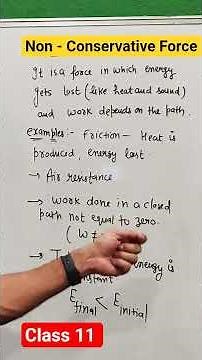 Non - Conservative Force
It is a force in which energy
gets lost (like heat and sound)
and work depends on the path.
examples:- Friction - Heat is
produced, energy lost
→ Air resistance
→ Work done in a closed
path not equal to zero.
(W ≠
→ T energy is
nstant
E final < E initial
Class 11